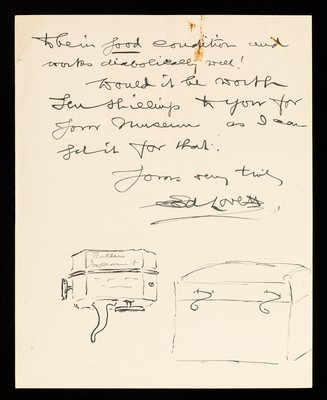 to be in good condition and
works diabolically well!
Would it be worth
Ten Shillings to you for
your Museum as I can
get it for that.
Yours very truly
Ed Lovett